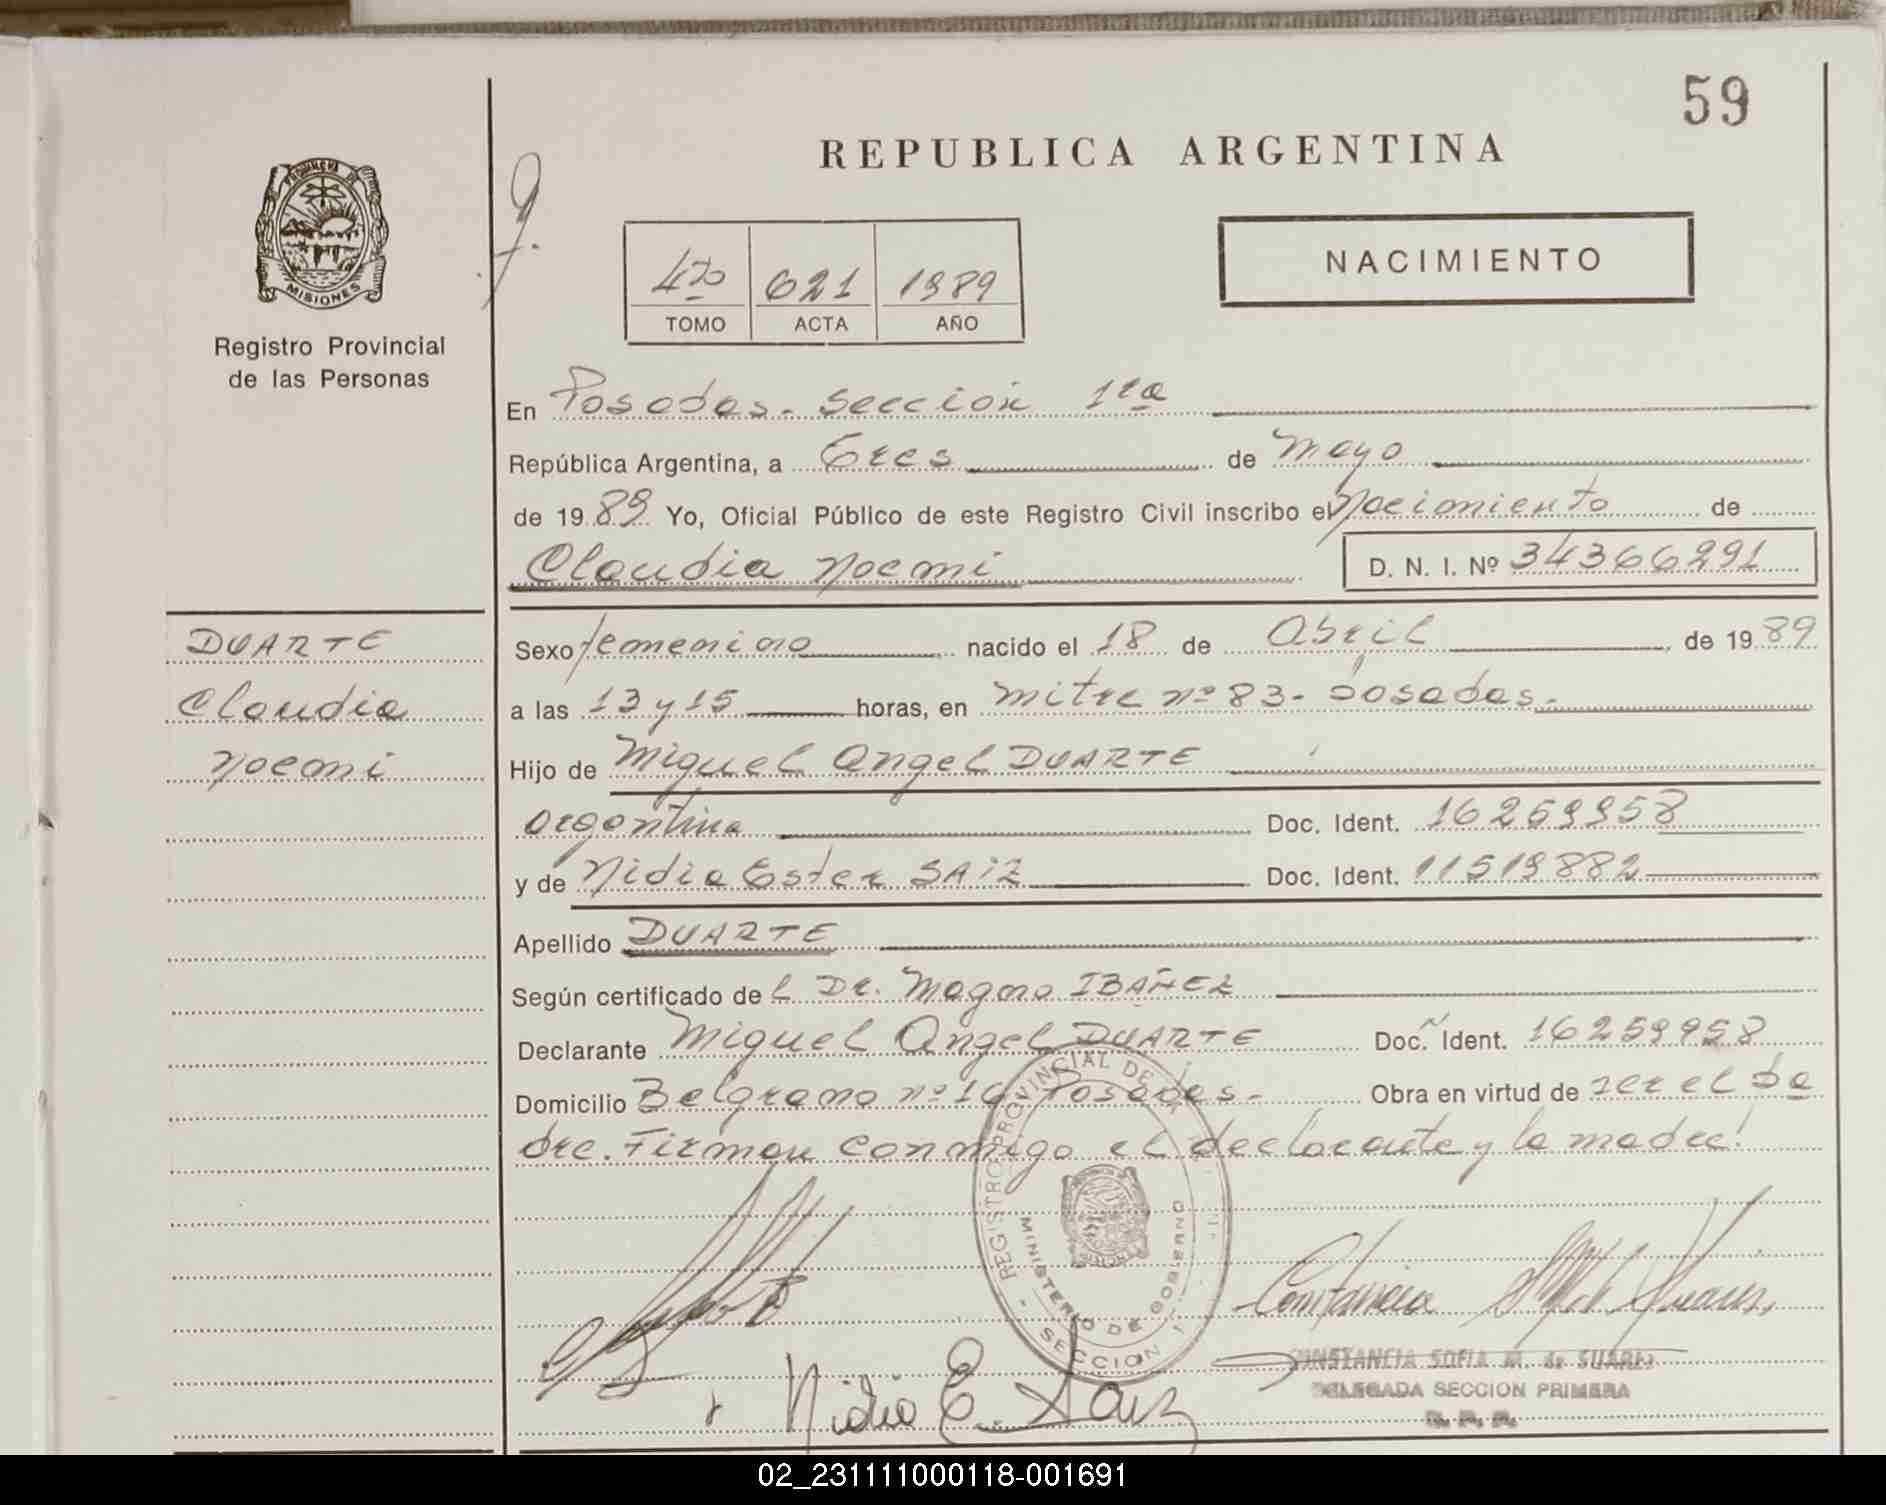 59
REPUBLICA ARGENTINA
PROVINCIA DE
MISIONES
Registro Provincial
de las Personas
4to 621 1989
TOMO ACTA AÑO
NACIMIENTO
En Posadas. Sección 1ra
República Argentina, a Tres de Mayo
de 1989 Yo, Oficial Público de este Registro Civil inscribo el Nacimiento de
Claudia Noemi D. N. I. Nº 34366291
DUARTE
Claudia
Noemi
Sexo femenino nacido el 18 de Abril de 1989
a las 13 y 15 horas, en Mitre nº 83- Posadas.
Hijo de Miguel Angel DUARTE
argentina Doc. Ident. 16259958
y de Nidia Ester SAIZ Doc. Ident. 11519882
Apellido DUARTE
Según certificado del Dr. Magno IBAÑEZ
Declarante Miguel Angel DUARTE Doc. Ident. 16259958
Domicilio Belgrano nº 16 Posadas- Obra en virtud de ser el pa
dre. Firman conmigo el declarante y la madre!
REGISTRO PROVINCIAL DE
MINISTERIO DE GOBIERNO
SECCION 1
Constancia Suarez
CONSTANCIA SOFIA M. de SUAREZ
DELEGADA SECCION PRIMERA
R. P. P.
Nidia E. Saiz
02_231111000118-001691